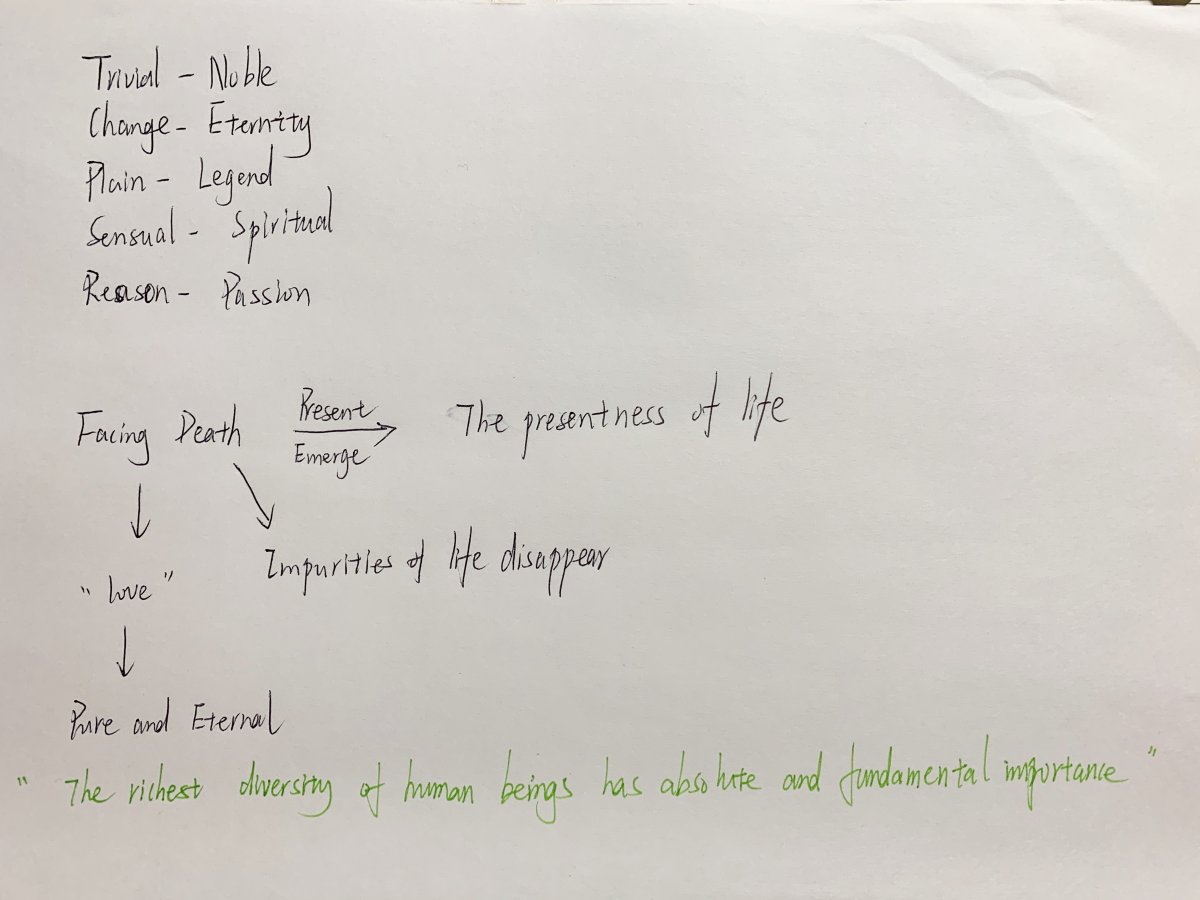 Trivial - Noble
Change - Eternity
Plain - Legend
Sensual - Spiritual
Reason - Passion
Present
Facing Death → The presentness of life
Emerge
↓ ↘
Impurities of life disappear
"love"
↓
Pure and Eternal
"The richest diversity of human beings has absolute and fundamental importance"